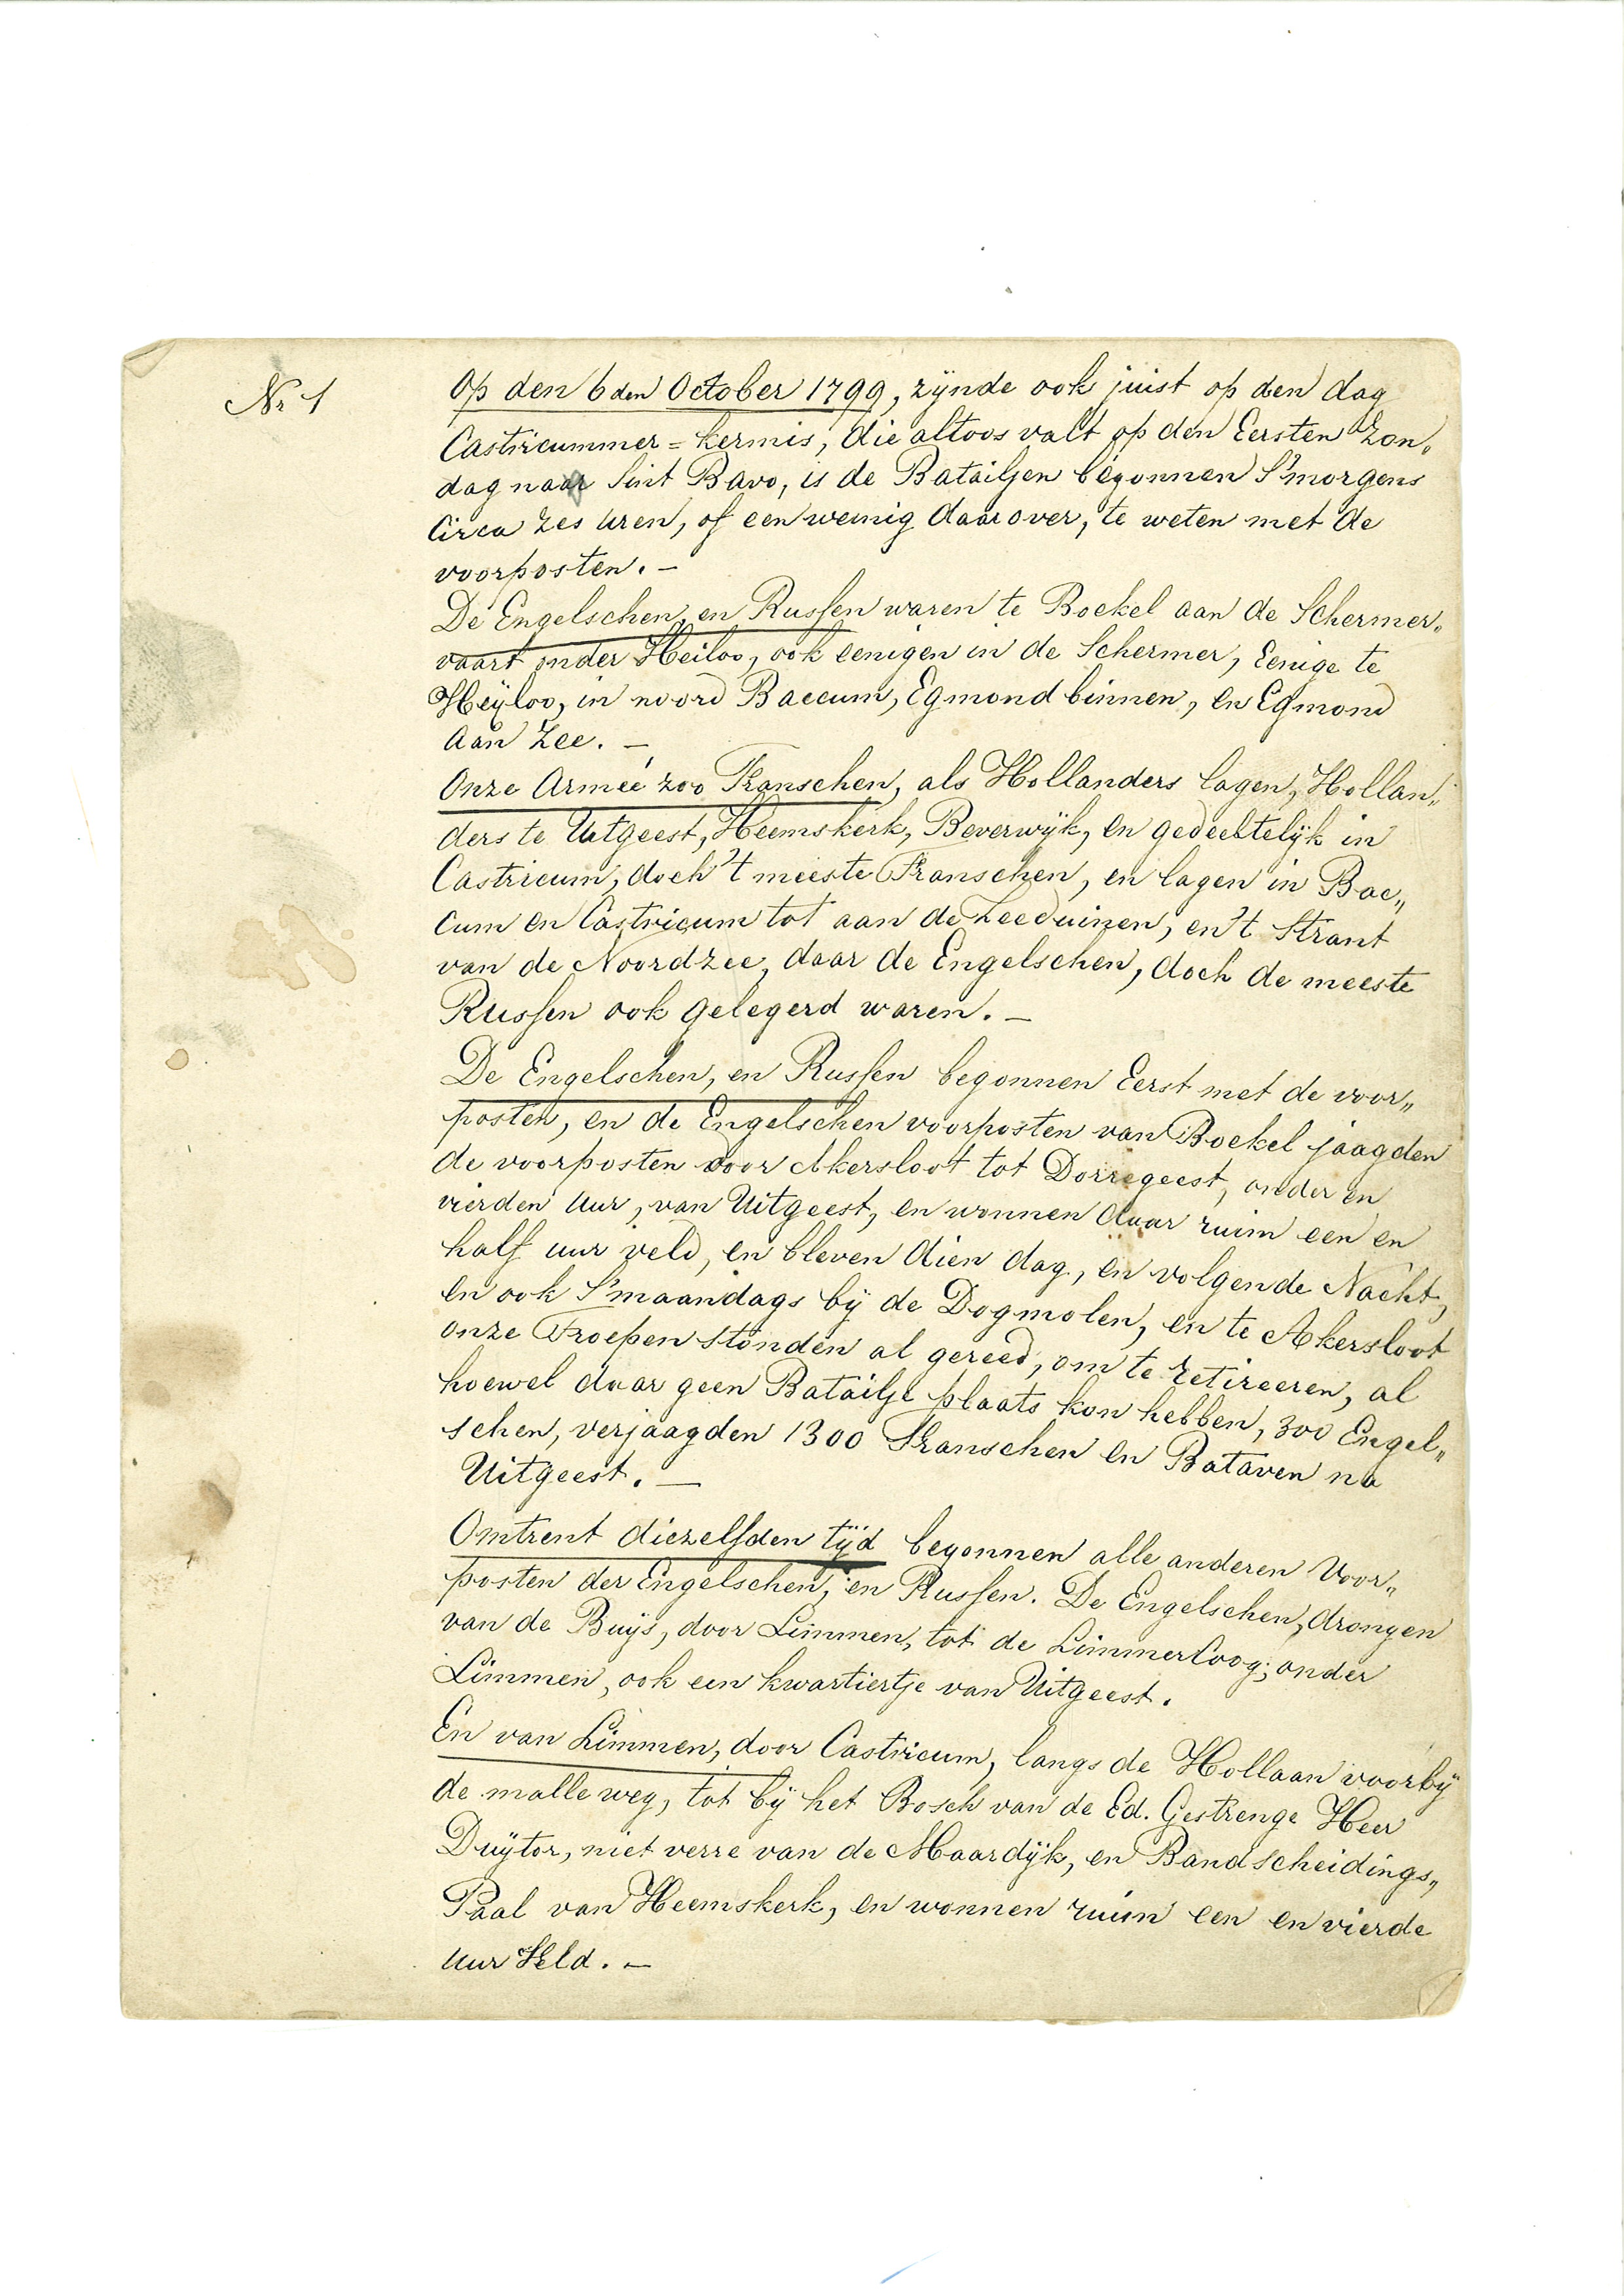 Nr 1
Op den 6den October 1799, zÿnde ook juist op den dag
Castricummer = kermis, die altoos valt op den Eersten Zon„
dag naar Sint Bavo, is de Batailjen begonnen S'morgens
Circa zes uren, of een weinig daar over, te weten met de
voorposten. —
De Engelschen, en Russen waren te Boekel aan de Schermer„
vaart onder Heiloo, ook eenigen in de Schermer, Eenige te
Heÿloo, in noord Baccum, Egmond binnen, en Egmond
aan Zee. —
Onze Armeé zoo Franschen, als Hollanders lagen, Hollan„
ders te Uitgeest, Heemskerk, Beverwÿk, en gedeeltelÿk in
Castricum, doch 't meeste Franschen, en lagen in Bac„
cum en Castricum tot aan de Zeeduinen, en 't Strant
van de Noordzee, daar de Engelschen, doch de meeste
Russen ook gelegerd waren. —
De Engelschen, en Russen begonnen Eerst met de voor„
posten, en de Engelschen voorposten van Boekel jaagden
de voorposten door Akersloot tot Dorregeest, onder en
vierden uur, van Uitgeest, en wonnen daar ruim een en
half uur veld, en bleven dien dag, en volgende Nacht,
en ook S'maandags bÿ de Dogmolen, en te Akersloot
onze Troepen stonden al gereed, om te retireeren, al
hoewel daar geen Batailje plaats kon hebben, 300 Engel„
schen, verjaagden 1300 Franschen en Bataven na
Uitgeest. —
Omtrent diezelfden tÿd begonnen alle anderen Voor„
posten der Engelschen, en Russen. De Engelschen, drongen
van de Buÿs, door Limmen, tot de Limmerkoog, onder
Limmen, ook een kwartiertje van Uitgeest.
En van Limmen, door Castricum, langs de Hollaan voorbÿ
de malle weg, tot bÿ het Bosch van de Ed. Gestrenge Heer
Duÿtor, niet verre van de Maardÿk, en Band scheidings„
Paal van Heemskerk, en wonnen ruim een en vierde
uur Veld. —